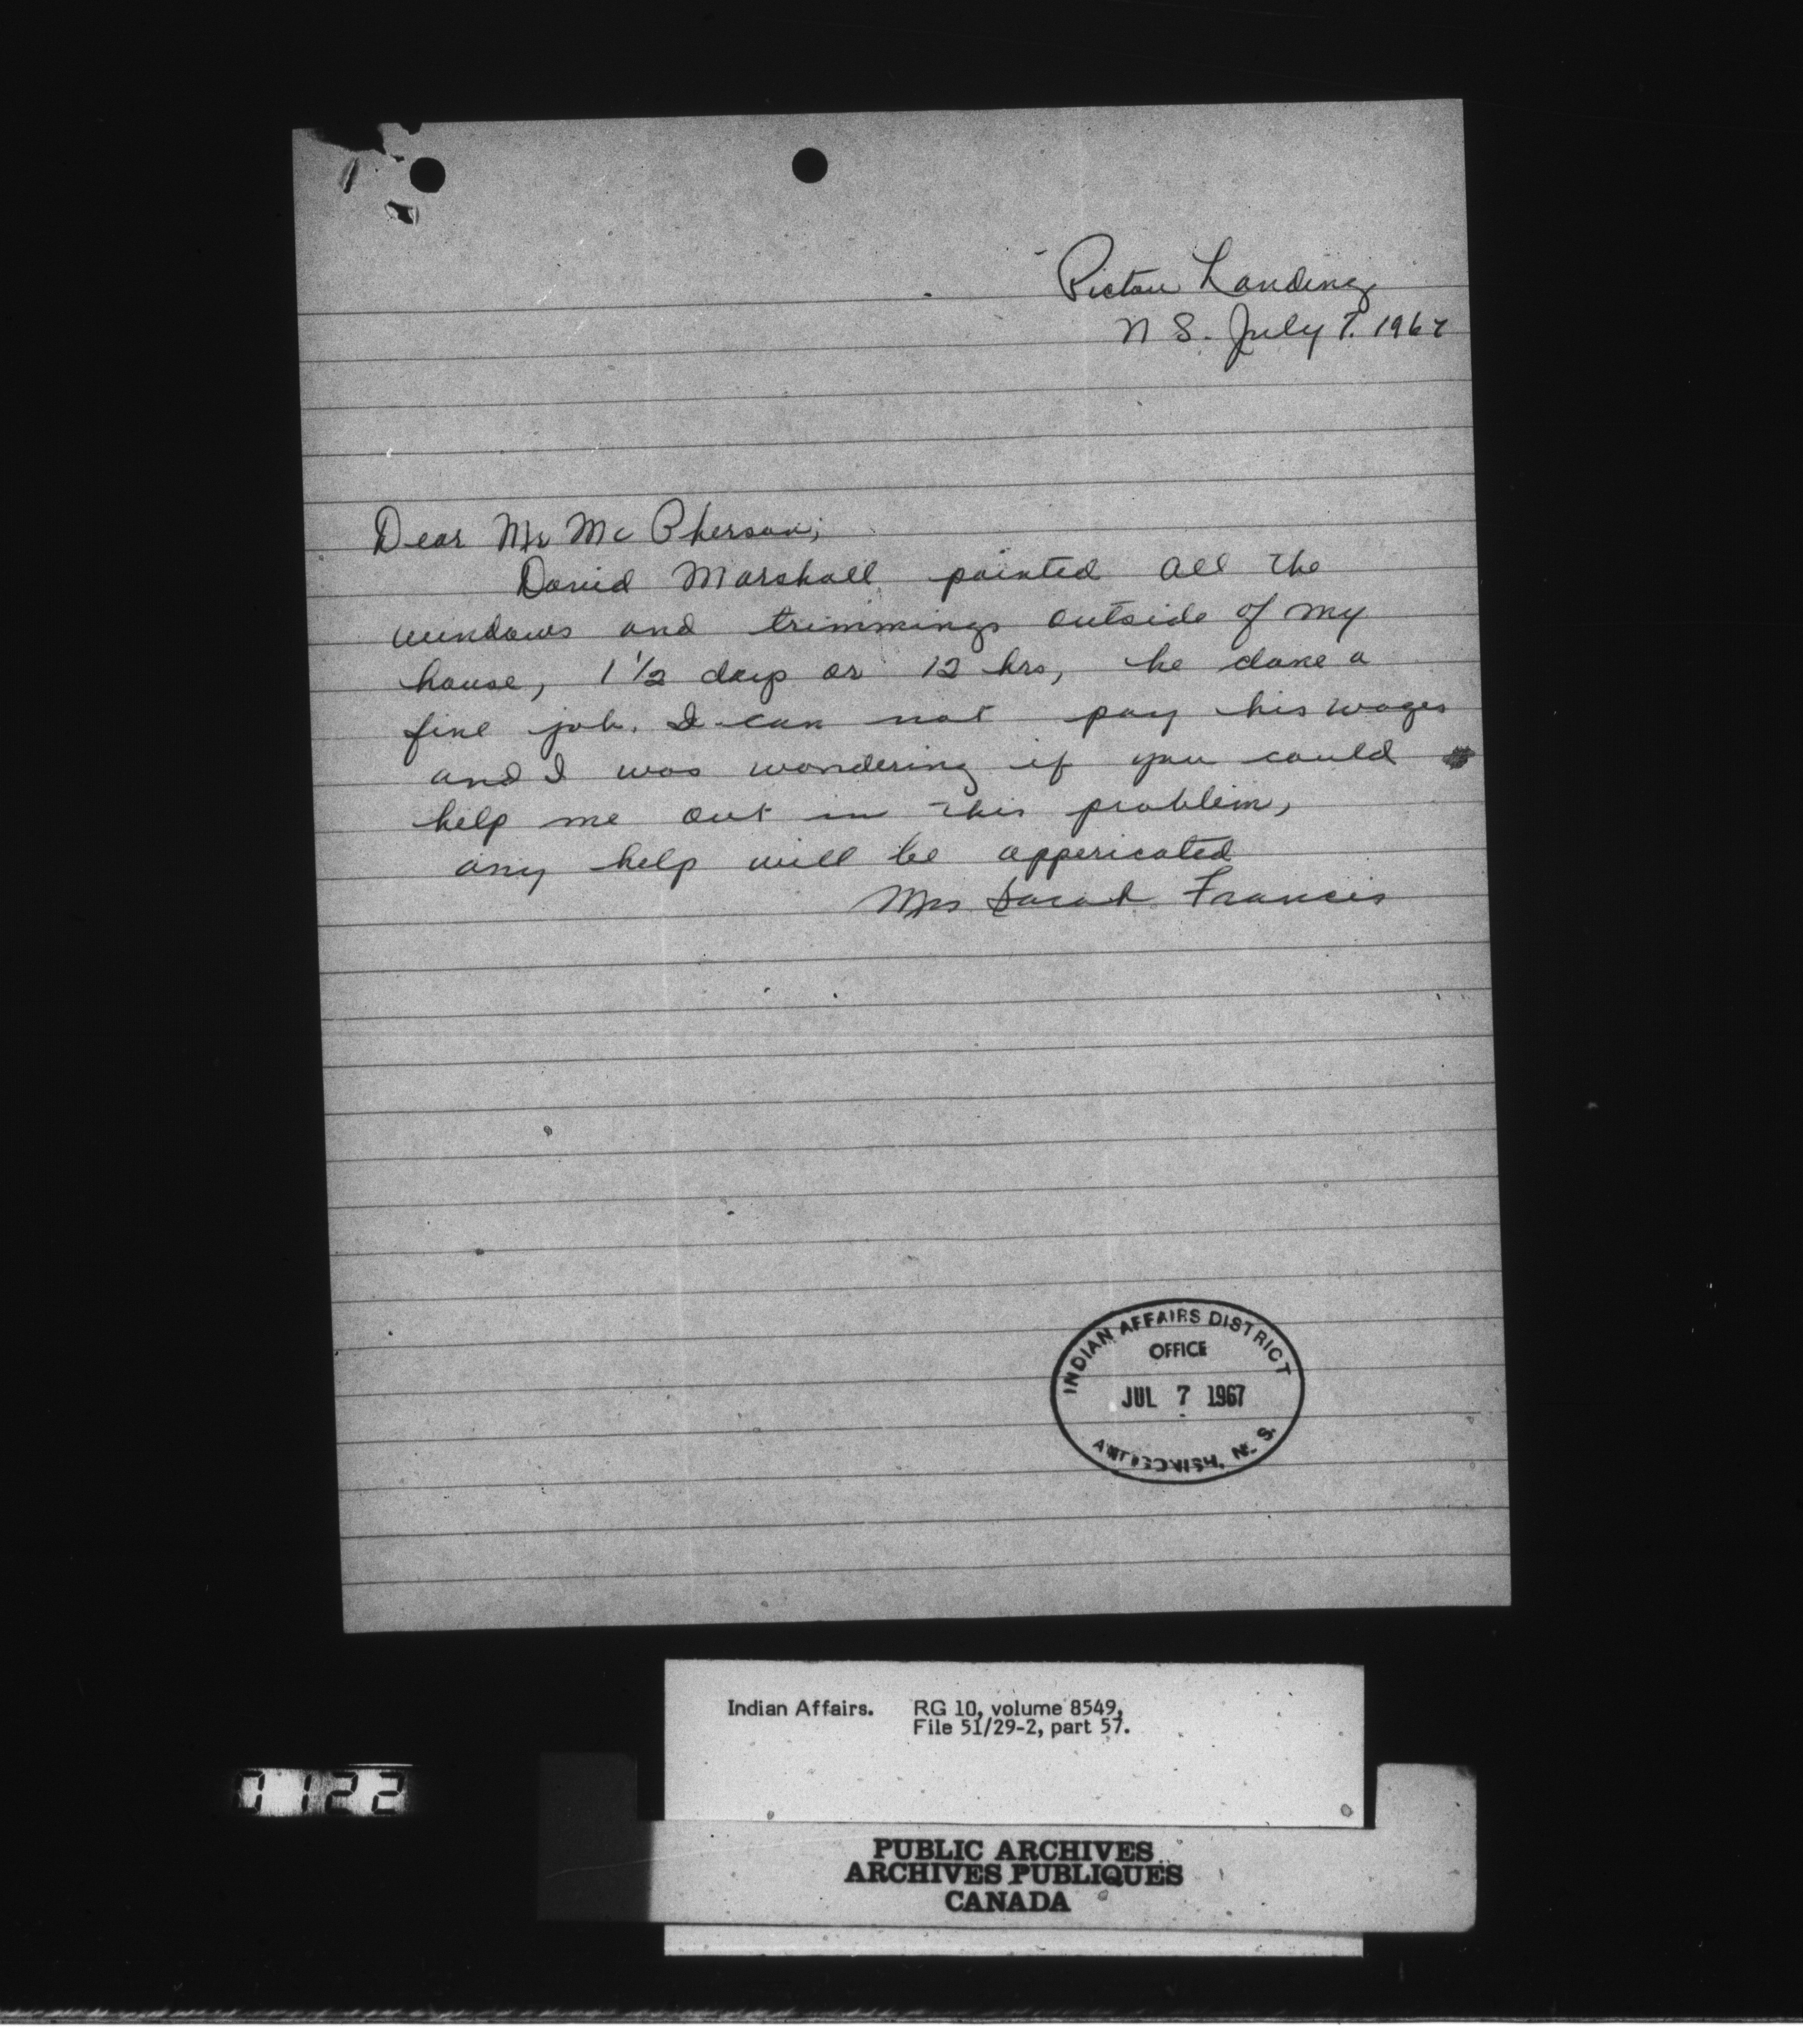 Pictou Landing
N S. July 7. 1967
Dear Mr Mc Pherson;
David Marshall painted all the
windows and trimmings outside of my
house, 1 1/2 days or 12 hrs, he done a
fine job. I can not pay his wages
and I was wondering if you could
help me out in this problem,
any help will be appericated
Mrs Sarah Francis
INDIAN AFFAIRS DISTRICT
OFFICE
JUL 7 1967
ANTIGONISH, N. S.
Indian Affairs. RG 10, volume 8549,
File 51/29-2, part 57.
0122
PUBLIC ARCHIVES
ARCHIVES PUBLIQUES
CANADA